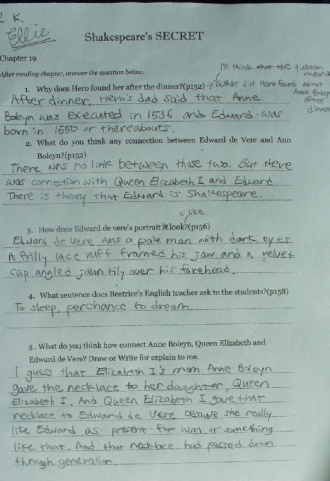 K.
Ellie
Shakespeare's SECRET
Chapter 19
I'll think that the question means
After reading chapter, answer the question below.
1. Why does Hero found her after the dinner?(p152) → What did Hero found about Anne Boleyn after dinner
After dinner, Hero's dad said that Anne
Boleyn was executed in 1536 and Edward was
born in 1550 or thereabouts.
2. What do you think any connection between Edward de Vere and Ann
Boleyn?(p152)
There was no link between those two. But there
was connection with Queen Elizabeth I and Edward.
There is theory that Edward is Shakespeare.
like
3. How does Edward de vere's portrait it look?(p156)
Edward de Vere was a pale man with dark eyes
A frilly lace ruff framed his jaw and a velvet
cap angled jauntily over his forehead.
4. What sentence does Beatrice's English teacher ask to the students?(p158)
To sleep, perchance to dream.
5. What do you think how connect Anne Boleyn, Queen Elizabeth and
Edward de Vere? Draw or Write for explain to me.
I guess that Elizabeth I's mom Anne Boleyn
gave the necklace to her daughter, Queen
Elizabeth I. And Queen Elizabeth I gave that
necklace to Edward de Vere because she really
like Edward as present for him or something
like that. And that necklace had passed down
through generation.